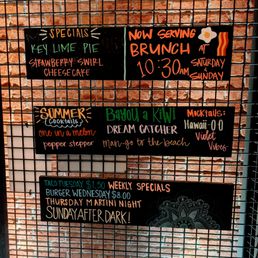 SPECIALS
KEY LIME PIE
STRAWBERRY SWIRL
CHEESECAKE
NOW SERVING
BRUNCH AT
10:30AM
SATURDAY
&
SUNDAY
SUMMER
COCKTAILS
one in a melon
pepper stepper
BAYOU a KIWI
DREAM CATCHER
Man-go to the beach
Mocktails:
Hawaii 0-0
Violet
Vibes
TACO TUESDAY $1.50 WEEKLY SPECIALS
BURGER WEDNESDAY $8.00
THURSDAY MARTINI NIGHT
SUNDAY AFTER DARK!